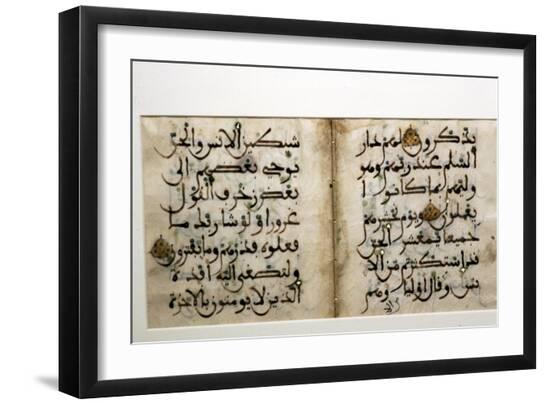 يذكرون لهم دار
السلم عند ربهم وهو
وليهم بما كانوا
يعملون ويوم نحشرهم
جميعا يمعشر الجن
قد استكثرتم من الا
نس وقال اولياوهم
شيطين الانس والجن
يوحي بعضهم الى
بعض زخرف القول
غرورا ولو شا ربك ما
فعلوه فذرهم وما يفترون
ولتصغى اليه افدة
الذين لا يومنون بالاخرة